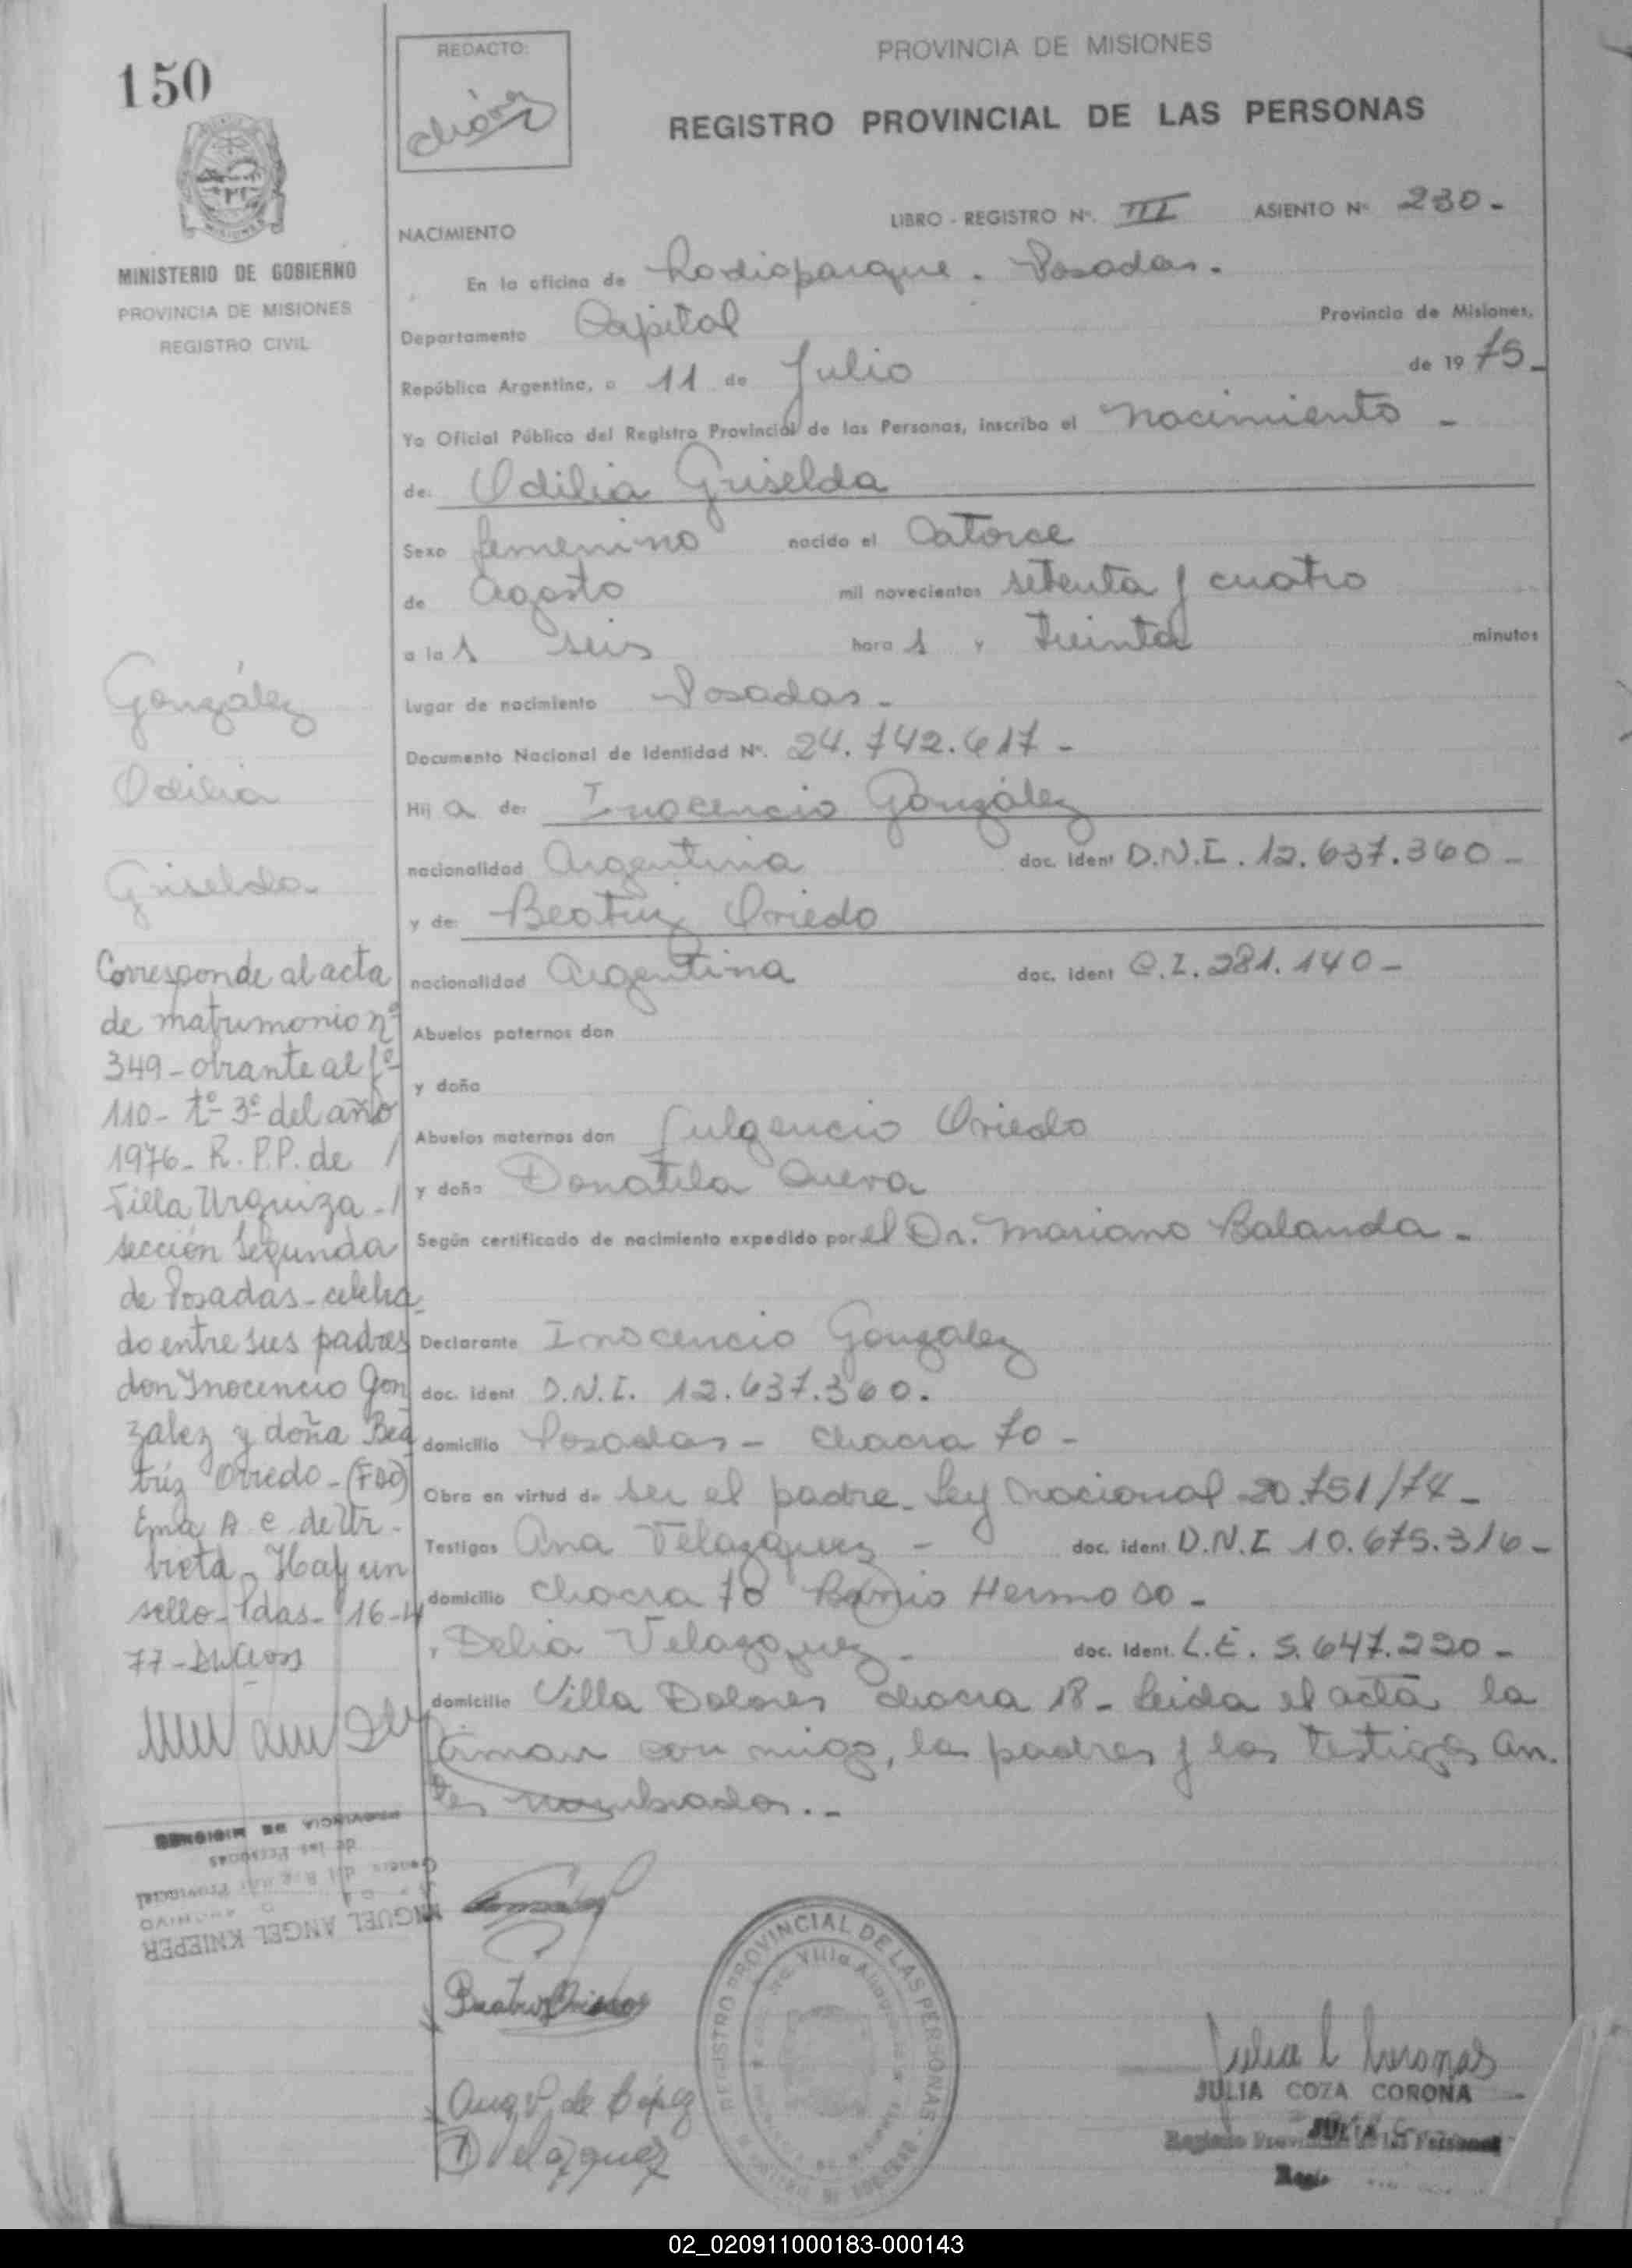 150
REDACTO:
PROVINCIA DE MISIONES
REGISTRO PROVINCIAL DE LAS PERSONAS
MINISTERIO DE GOBIERNO
PROVINCIA DE MISIONES
REGISTRO CIVIL
LIBRO - REGISTRO Nº. III ASIENTO Nº 230 -
NACIMIENTO
En la oficina de Radioparque. Posadas.
Departamento Capital Provincia de Misiones,
República Argentina, a 11 de Julio de 19 75 -
Yo Oficial Público del Registro Provincial de las Personas, inscribo el nacimiento -
de: Odilia Griselda
Sexo femenino nacido el Catorce
de Agosto mil novecientos setenta y cuatro
a las seis horas y treinta minutos
Lugar de nacimiento Posadas -
Documento Nacional de Identidad Nº. 24.742.617 -
Hij a de: Inocencio González
nacionalidad Argentina doc. ident D.N.I. 12.637.360 -
y de: Beatriz Oviedo
nacionalidad Argentina doc. ident C.I. 281.140 -
Abuelos paternos don
y doña
Abuelos maternos don Fulgencio Oviedo
y doña Donatila
Según certificado de nacimiento expedido por el Dr. Mariano Balanda -
Declarante Inocencio González
doc. ident D.N.I. 12.637.360.
domicilio Posadas - Chacra 70 -
Obra en virtud de ser el padre - Ley Nacional 20.751/74 -
Testigos Ana Velazquez - doc. ident. D.N.I 10.675.316 -
domicilio Chacra 70 Barrio Hermoso -
y Delia Velazquez - doc. ident. L.E. 5.647.220 -
domicilio Villa Dolores chacra 18 - Leida el acta la
firman con migo, los padres y los testigos an.
tes nombrados. -
González
Odilia
Griselda
Corresponde al acta
de matrimonio nº
349 - obrante al fº
110 - tº 3º del año
1976 - R.P.P. de
Villa Urquiza -
sección Segunda
de Posadas - celebra
do entre sus padres
don Inocencio Gon
zalez y doña Bea
tríz Oviedo - (FDO)
Ema A C. de Ur -
bieta - Hay un
sello - Pdas - 16-4
77 -
PROVINCIA DE MISIONES
de las Personas
MIGUEL ANGEL KNIEPER
Beatriz Oviedo
Ana V. de López
D Velázquez
REGISTRO PROVINCIAL DE LAS PERSONAS
JULIA COZA CORONA
02_020911000183-000143